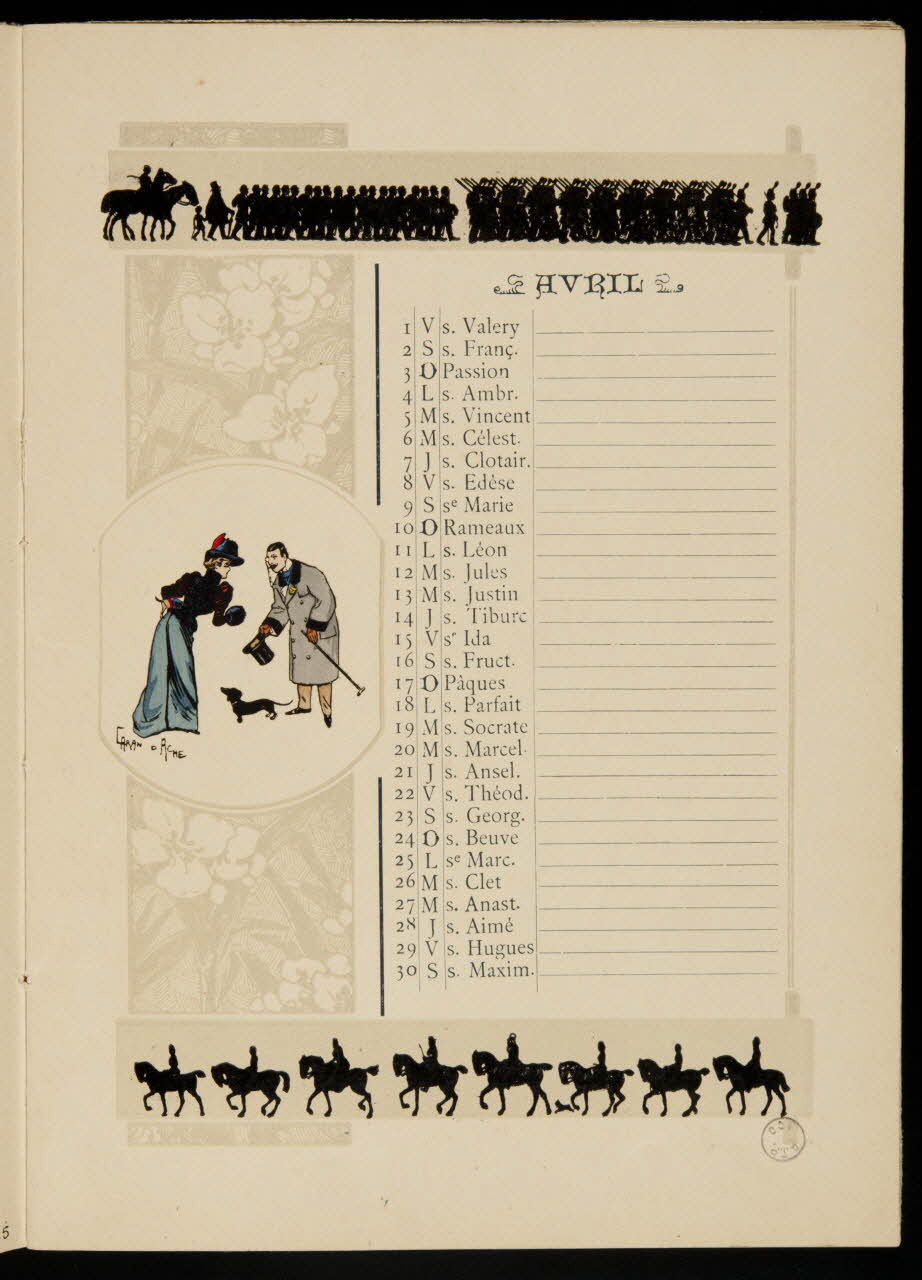 AVRIL
1 V s. Valery
2 S s. Franç.
3 D Passion
4 L s. Ambr.
5 M s. Vincent
6 M s. Célest.
7 J s. Clotair.
8 V s. Edèse
9 S sᵉ Marie
10 D Rameaux
11 L s. Léon
12 M s. Jules
13 M s. Justin
14 J s. Tiburc
15 V sᵉ Ida
16 S s. Fruct.
17 D Pâques
18 L s. Parfait
19 M s. Socrate
20 M s. Marcel.
21 J s. Ansel.
22 V s. Théod.
23 S s. Georg.
24 D s. Beuve
25 L sᵉ Marc.
26 M s. Clet
27 M s. Anast.
28 J s. Aimé
29 V s. Hugues
30 S s. Maxim.
CARAN D ACHE
5